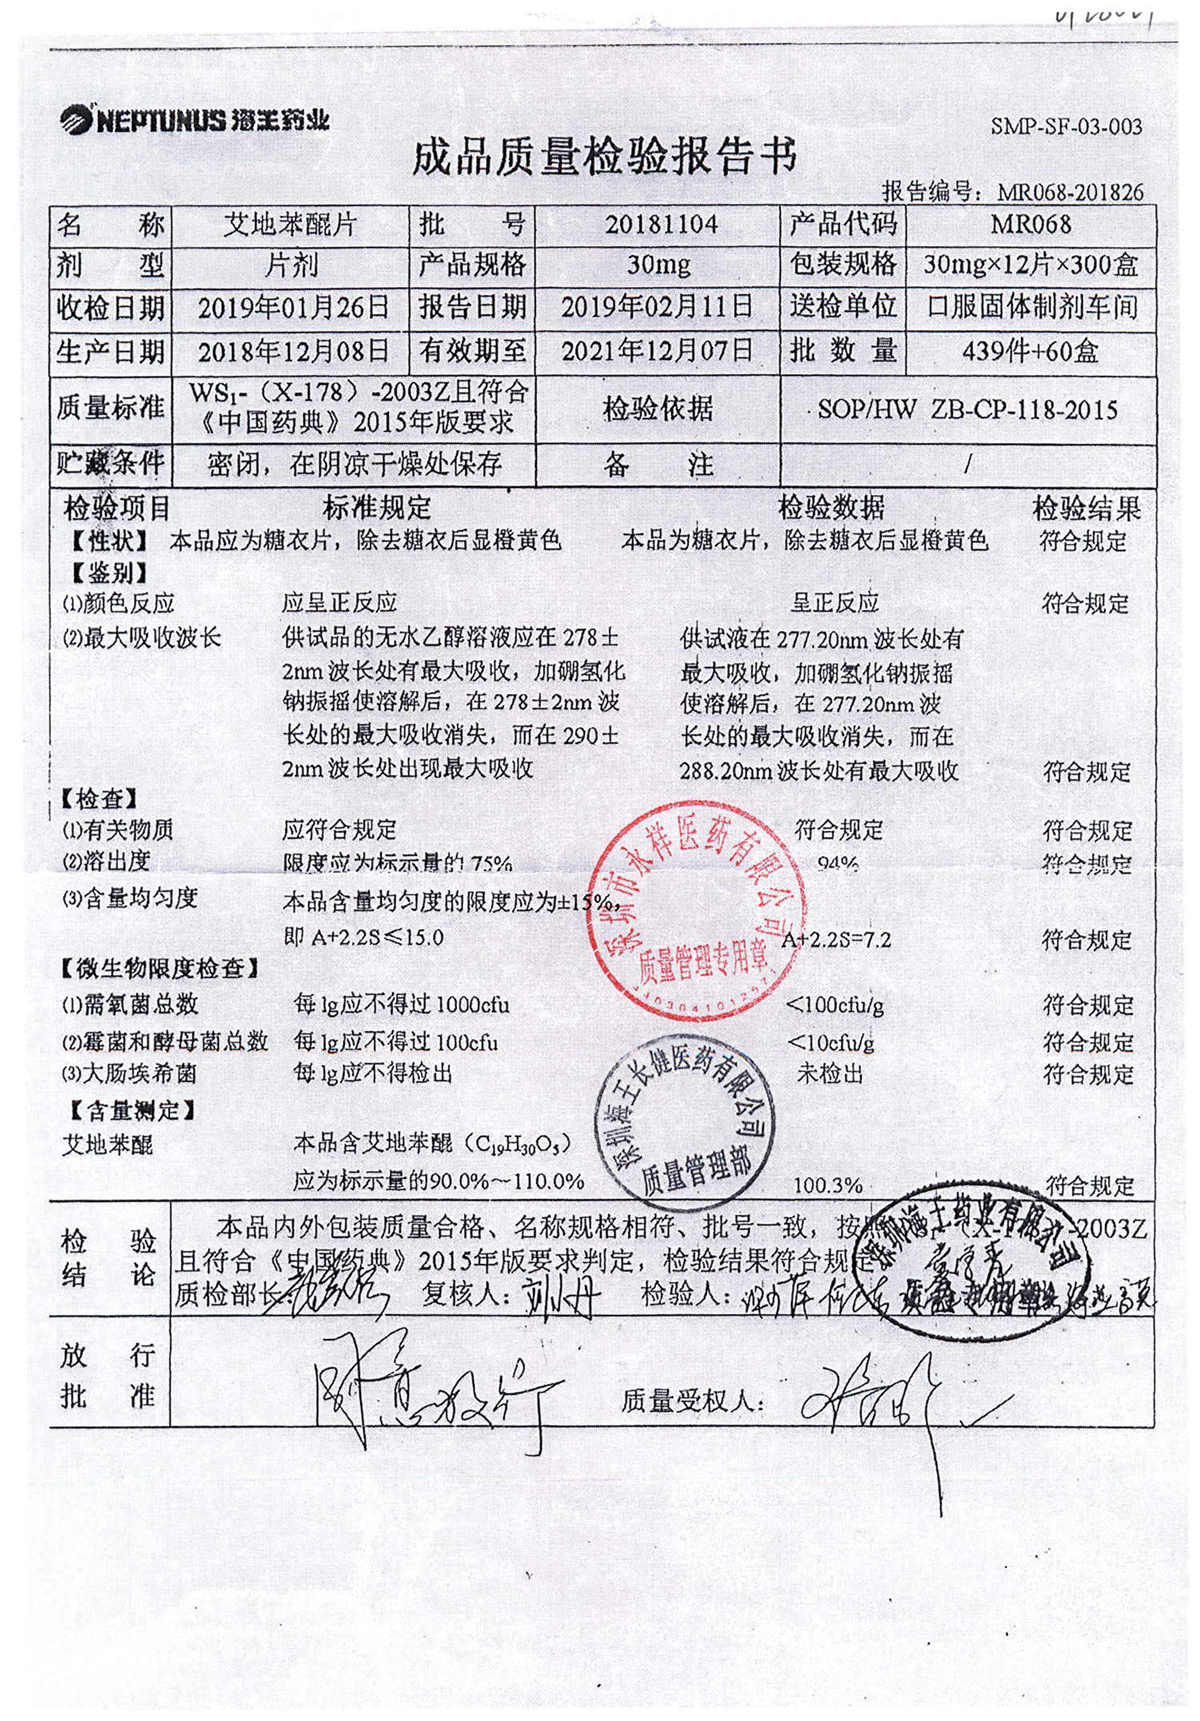 NEPTUNUS 海王药业
SMP-SF-03-003
成品质量检验报告书
报告编号：MR068-201826
名 称 艾地苯醌片 批 号 20181104 产品代码 MR068
剂 型 片剂 产品规格 30mg 包装规格 30mg×12片×300盒
收检日期 2019年01月26日 报告日期 2019年02月11日 送检单位 口服固体制剂车间
生产日期 2018年12月08日 有效期至 2021年12月07日 批 数 量 439件+60盒
质量标准 WS₁-（X-178）-2003Z且符合《中国药典》2015年版要求 检验依据 SOP/HW ZB-CP-118-2015
贮藏条件 密闭，在阴凉干燥处保存 备 注 /
检验项目 标准规定 检验数据 检验结果
【性状】 本品应为糖衣片，除去糖衣后显橙黄色 本品为糖衣片，除去糖衣后显橙黄色 符合规定
【鉴别】
⑴颜色反应 应呈正反应 呈正反应 符合规定
⑵最大吸收波长 供试品的无水乙醇溶液应在 278± 供试液在 277.20nm 波长处有
2nm 波长处有最大吸收，加硼氢化 最大吸收，加硼氢化钠振摇
钠振摇使溶解后，在 278±2nm 波 使溶解后，在 277.20nm 波
长处的最大吸收消失，而在 290± 长处的最大吸收消失，而在
2nm 波长处出现最大吸收 288.20nm 波长处有最大吸收 符合规定
【检查】
⑴有关物质 应符合规定 符合规定 符合规定
⑵溶出度 限度应为标示量的 75% 94% 符合规定
⑶含量均匀度 本品含量均匀度的限度应为±15%，
即 A+2.2S≤15.0 A+2.2S=7.2 符合规定
【微生物限度检查】
⑴需氧菌总数 每 1g 应不得过 1000cfu <100cfu/g 符合规定
⑵霉菌和酵母菌总数 每 1g 应不得过 100cfu <10cfu/g 符合规定
⑶大肠埃希菌 每 1g 应不得检出 未检出 符合规定
【含量测定】
艾地苯醌 本品含艾地苯醌（C₁₉H₃₀O₅）
应为标示量的90.0%～110.0% 100.3% 符合规定
深圳市永祥医药有限公司
质量管理专用章
深圳海王长健医药有限公司
质量管理部
检 验 结 论 本品内外包装质量合格、名称规格相符、批号一致，按 -2003Z
且符合《中国药典》2015年版要求判定，检验结果符合规定
质检部长： 复核人： 检验人：
深圳海王药业有限公司
放 行 批 准 质量受权人：